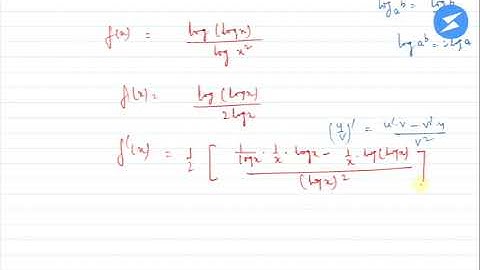 log_a b = log b
f(x) = log (logx) / log x²
log a^b = b log a
f(x) = log (logx) / 2logx
(u/v)' = u'.v - v'.u / v²
f'(x) = 1/2 [ 1/logx . 1/x . logx - 1/x . log(logx) / (logx)² ]